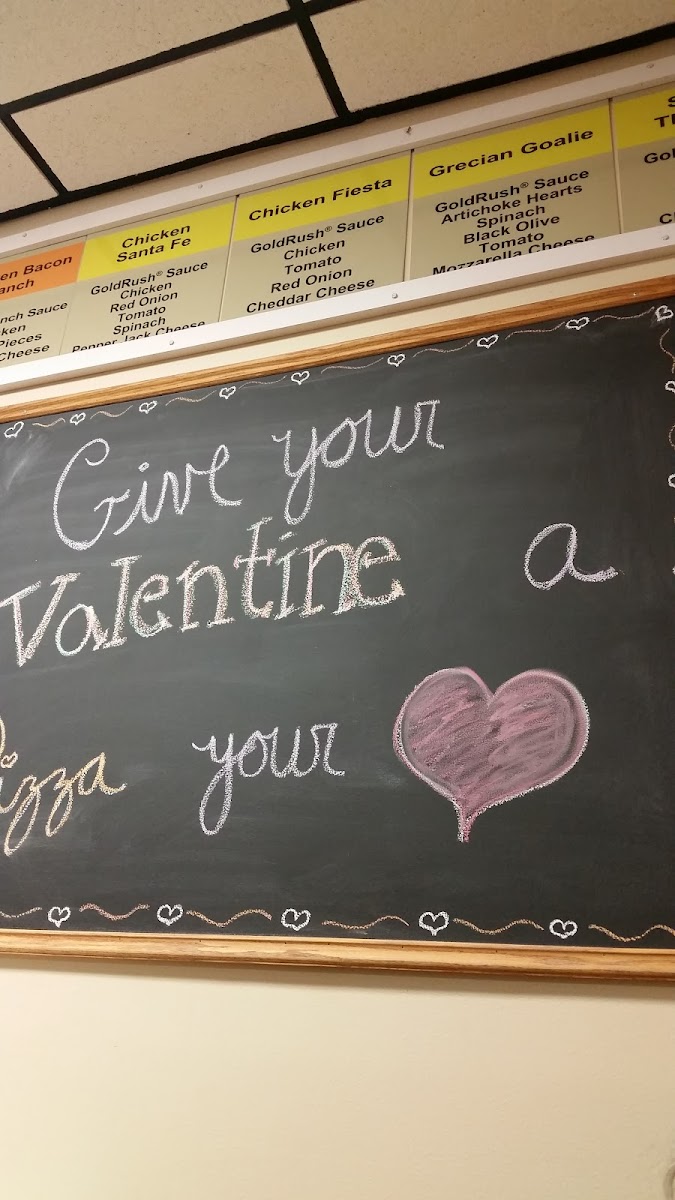 en Bacon
anch
nch Sauce
ken
Pieces
Cheese
Chicken
Santa Fe
GoldRush® Sauce
Chicken
Red Onion
Tomato
Spinach
Pepper Jack Cheese
Chicken Fiesta
GoldRush® Sauce
Chicken
Tomato
Red Onion
Cheddar Cheese
Grecian Goalie
GoldRush® Sauce
Artichoke Hearts
Spinach
Black Olive
Tomato
Mozzarella Cheese
S
Th
Gol
Ch
Give your
Valentine a
Pizza your